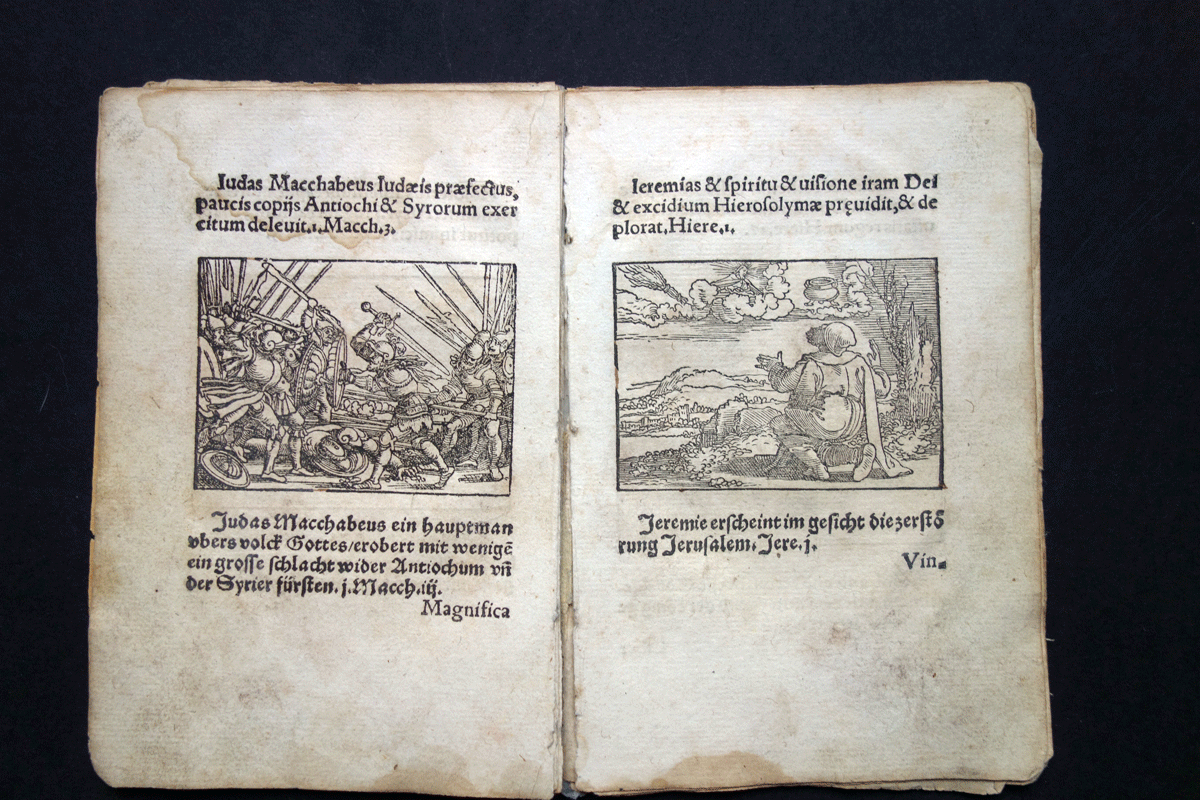 Iudas Macchabeus Iudæis præfectus,
paucis copijs Antiochi & Syrorum exer
citum deleuit.1. Macch.3.
Judas Macchabeus ein hauptman
vbers volck Gottes/erobert mit wenigē
ein grosse schlacht wider Antiochum vñ
der Syrier fürsten. j.Macch.iij.
Magnifica
Ieremias & spiritu & uisione iram Dei
& excidium Hierosolymæ pręuidit,& de
plorat.Hiere.1.
Jeremie erscheint im gesicht die zerstö
rung Jerusalem. Jere.j.
Vin-